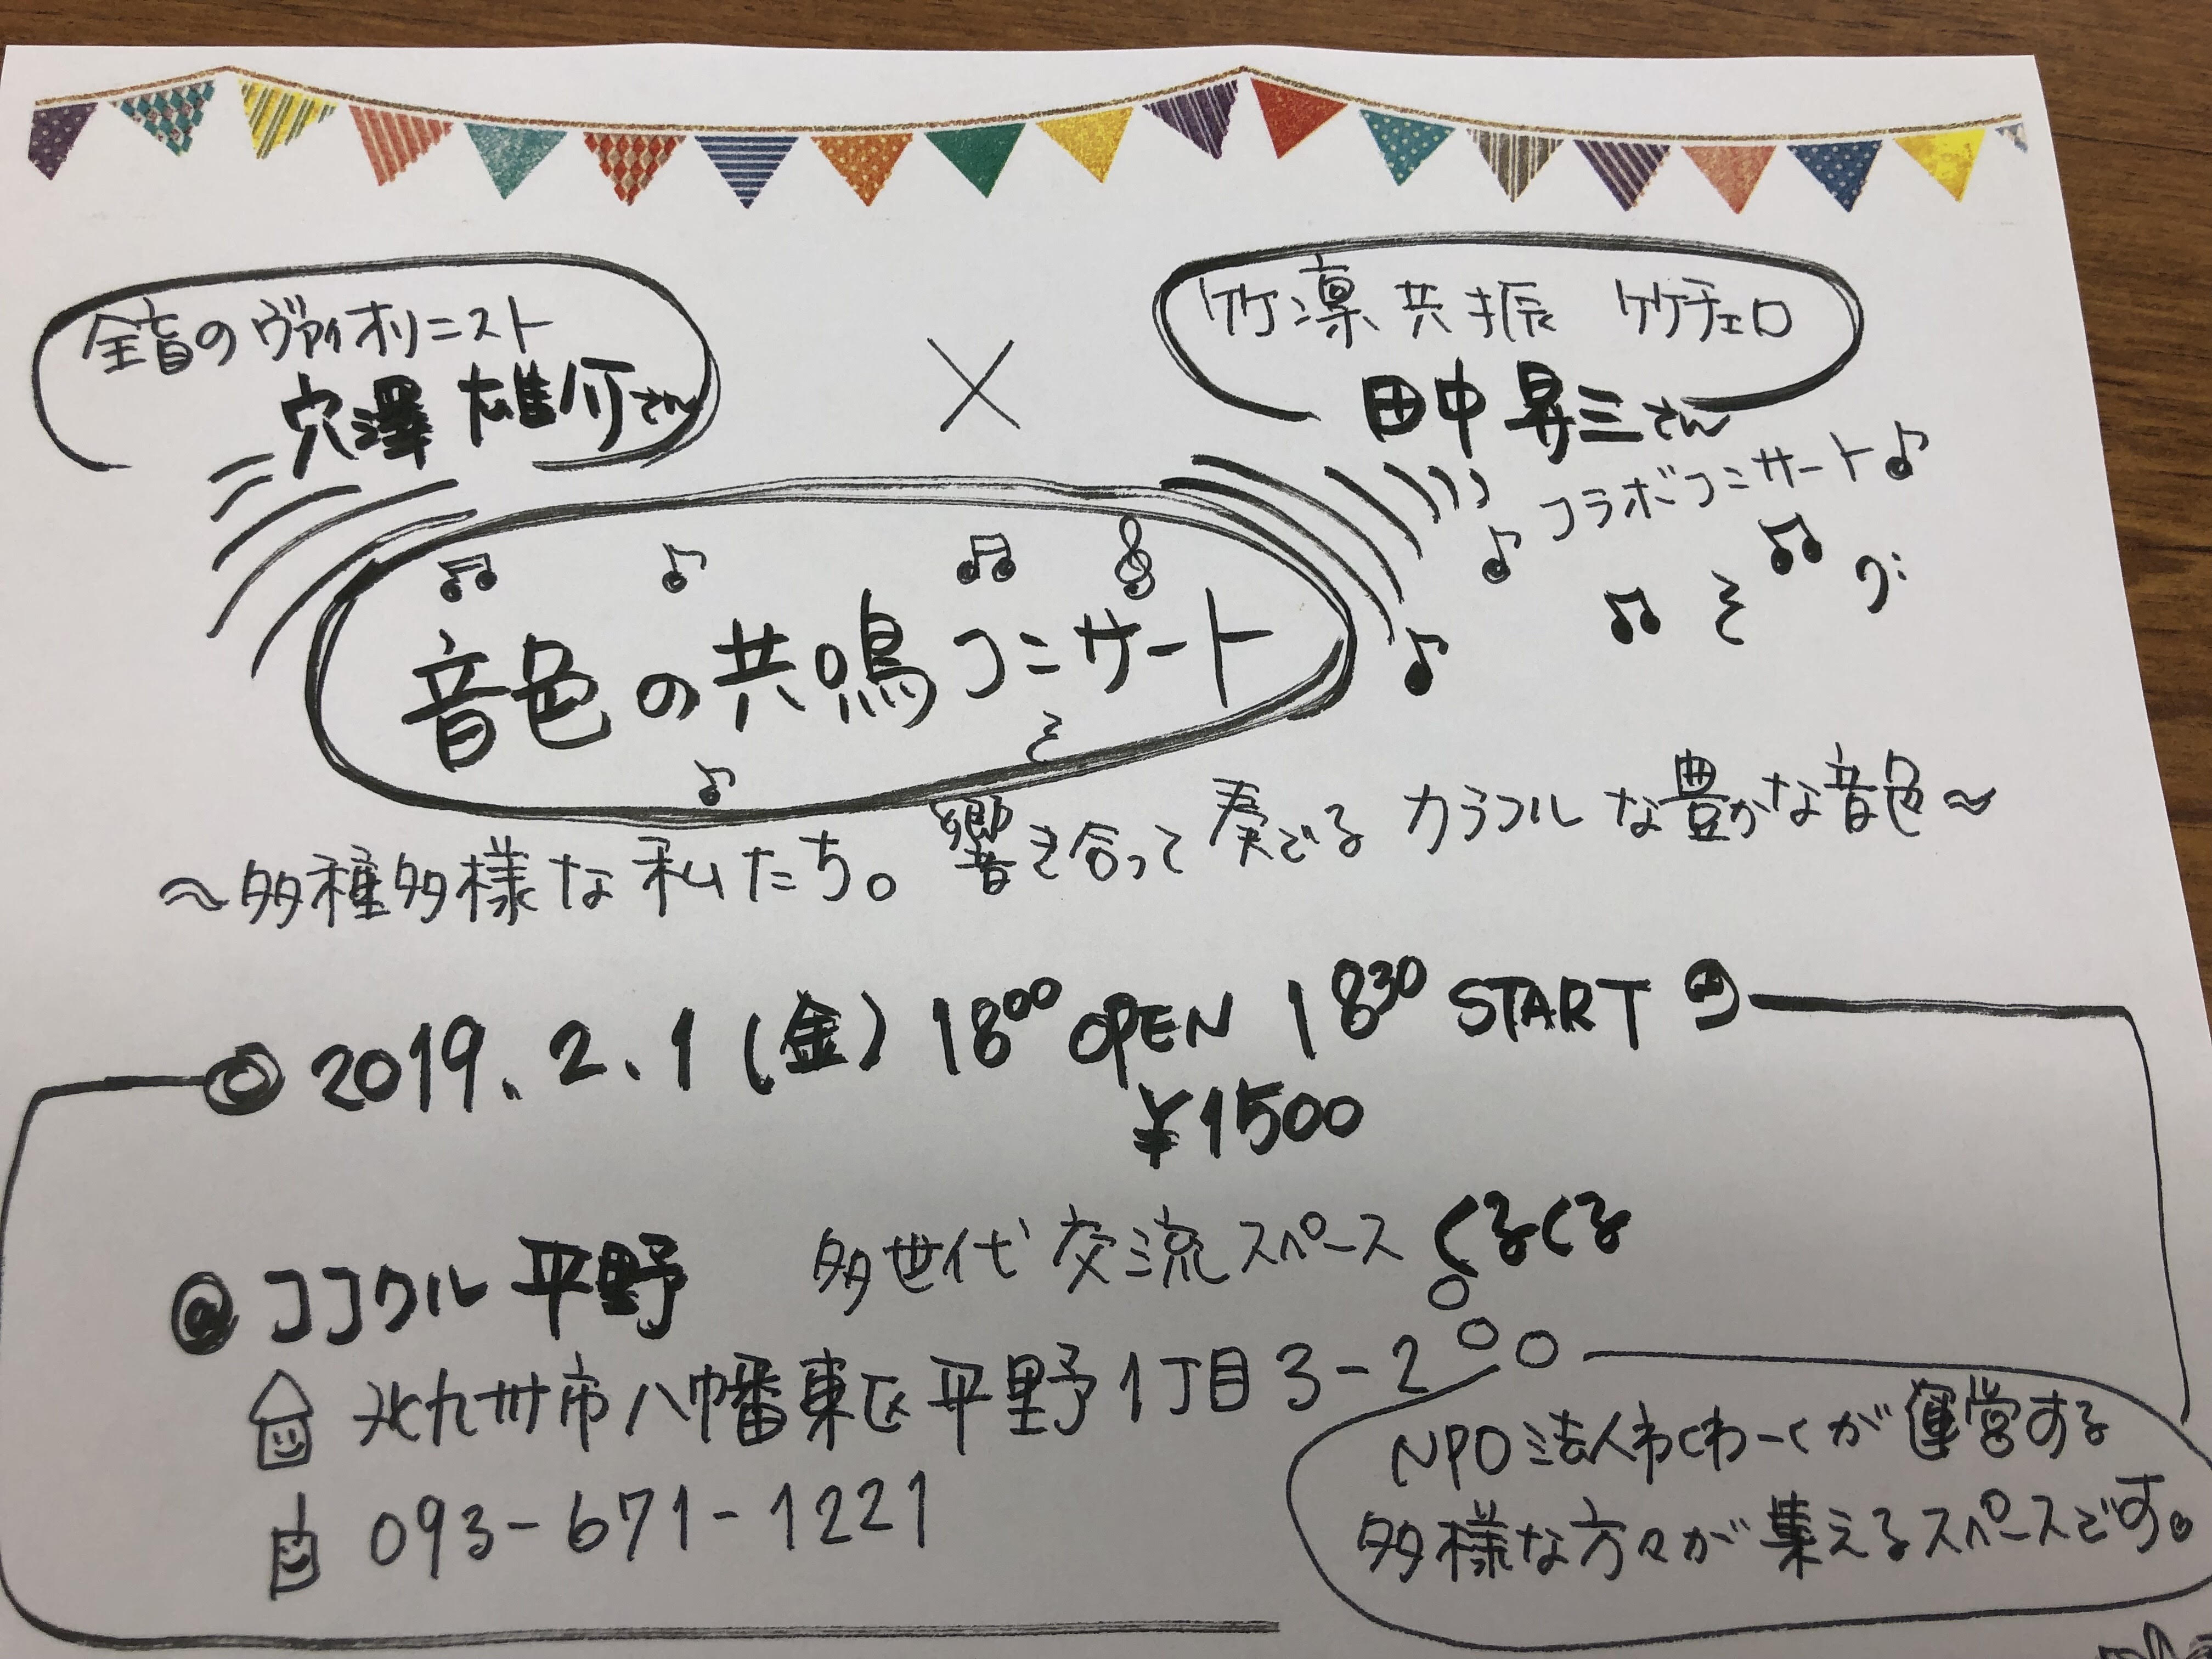 全盲のヴァイオリニスト
穴澤 雄介さん
×
竹凛共振 竹チェロ
田中 昇三さん
コラボコンサート
音色の共鳴コンサート
～多種多様な私たち。響き合って奏でるカラフルな豊かな音色～
2019.2.1(金) 18:00 OPEN 18:30 START
¥1500
@ココクル平野 多世代交流スペース くるくる
北九州市八幡東区平野1丁目3-2
093-671-1221
NPO法人わくわーくが運営する
多様な方々が集えるスペースです。